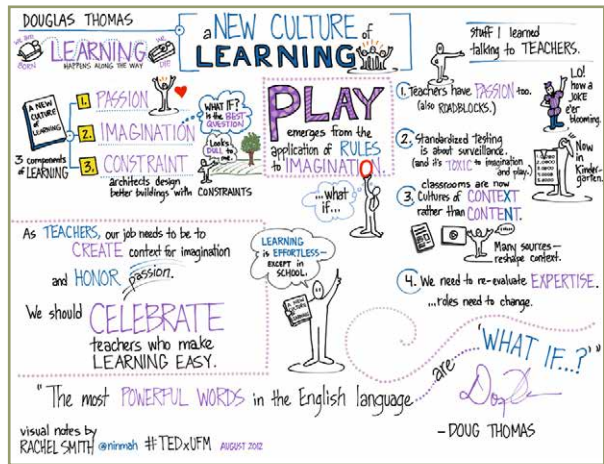 DOUGLAS THOMAS
a NEW CULTURE of
LEARNING
WE ARE
BORN
LEARNING
HAPPENS ALONG THE WAY
WE
DIE
A NEW
CULTURE
of
LEARNING
3 components
of LEARNING
1. PASSION
2. IMAGINATION
3. CONSTRAINT
architects design
better buildings with CONSTRAINTS
WHAT IF?
is the BEST
QUESTION
Looks
DULL to
me.
PLAY
emerges from the
application of RULES
to IMAGINATION.
...what
if...
stuff I learned
talking to TEACHERS.
1. Teachers have PASSION too.
(also ROADBLOCKS.)
LO!
how a
JOKE
e'er
blooming.
2. Standardized Testing
is about surveillance.
(and it's TOXIC to imagination
and play.)
Now
in
Kinder-
garten.
classrooms are now
3. Cultures of CONTEXT
rather than CONTENT.
Many sources—
reshape context.
4. We need to re-evaluate EXPERTISE.
...roles need to change.
As TEACHERS, our job needs to be to
CREATE context for imagination
and HONOR passion.
We should CELEBRATE
teachers who make
LEARNING EASY.
LEARNING
is EFFORTLESS—
EXCEPT in
SCHOOL.
A NEW
CULTURE
of
LEARNING
"The most POWERFUL WORDS in the English language
are
'WHAT IF...?'"
—DOUG THOMAS
visual notes by
RACHEL SMITH @ninmah #TEDxUFM AUGUST 2012